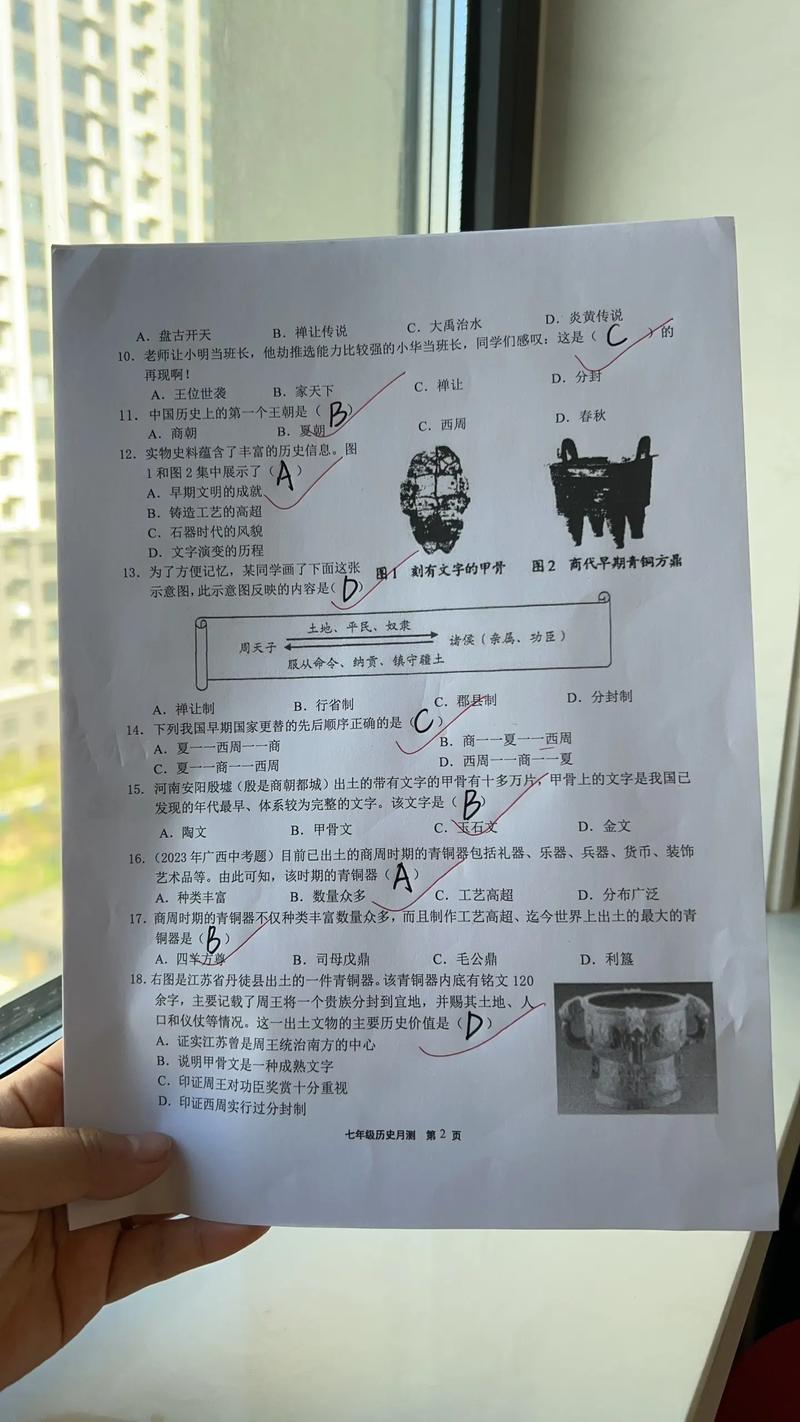 A. 盘古开天 B. 禅让传说 C. 大禹治水 D. 炎黄传说
10. 老师让小明当班长，他劫推选能力比较强的小华当班长，同学们感叹：这是（ C ）的
再现啊！
A. 王位世袭 B. 家天下 C. 禅让 D. 分封
11. 中国历史上的第一个王朝是（ B ）
A. 商朝 B. 夏朝 C. 西周 D. 春秋
12. 实物史料蕴含了丰富的历史信息。图
1和图2集中展示了（ A ）
A. 早期文明的成就
B. 铸造工艺的高超
C. 石器时代的风貌
D. 文字演变的历程
图1 刻有文字的甲骨 图2 商代早期青铜方鼎
13. 为了方便记忆，某同学画了下面这张
示意图，此示意图反映的内容是（ D ）
土地、平民、奴隶
周天子 诸侯（亲属、功臣）
服从命令、纳贡、镇守疆土
A. 禅让制 B. 行省制 C. 郡县制 D. 分封制
14. 下列我国早期国家更替的先后顺序正确的是（ C ）
A. 夏——西周——商 B. 商——夏——西周
C. 夏——商——西周 D. 西周——商——夏
15. 河南安阳殷墟（殷是商朝都城）出土的带有文字的甲骨有十多万片，甲骨上的文字是我国已
发现的年代最早、体系较为完整的文字。该文字是（ B ）
A. 陶文 B. 甲骨文 C. 玉石文 D. 金文
16.（2023年广西中考题）目前已出土的商周时期的青铜器包括礼器、乐器、兵器、货币、装饰
艺术品等。由此可知，该时期的青铜器（ A ）
A. 种类丰富 B. 数量众多 C. 工艺高超 D. 分布广泛
17. 商周时期的青铜器不仅种类丰富数量众多，而且制作工艺高超、迄今世界上出土的最大的青
铜器是（ B ）
A. 四羊方尊 B. 司母戊鼎 C. 毛公鼎 D. 利簋
18. 右图是江苏省丹徒县出土的一件青铜器。该青铜器内底有铭文120
余字，主要记载了周王将一个贵族分封到宜地，并赐其土地、人
口和仪仗等情况。这一出土文物的主要历史价值是（ D ）
A. 证实江苏曾是周王统治南方的中心
B. 说明甲骨文是一种成熟文字
C. 印证周王对功臣奖赏十分重视
D. 印证西周实行过分封制
七年级历史月测 第2页